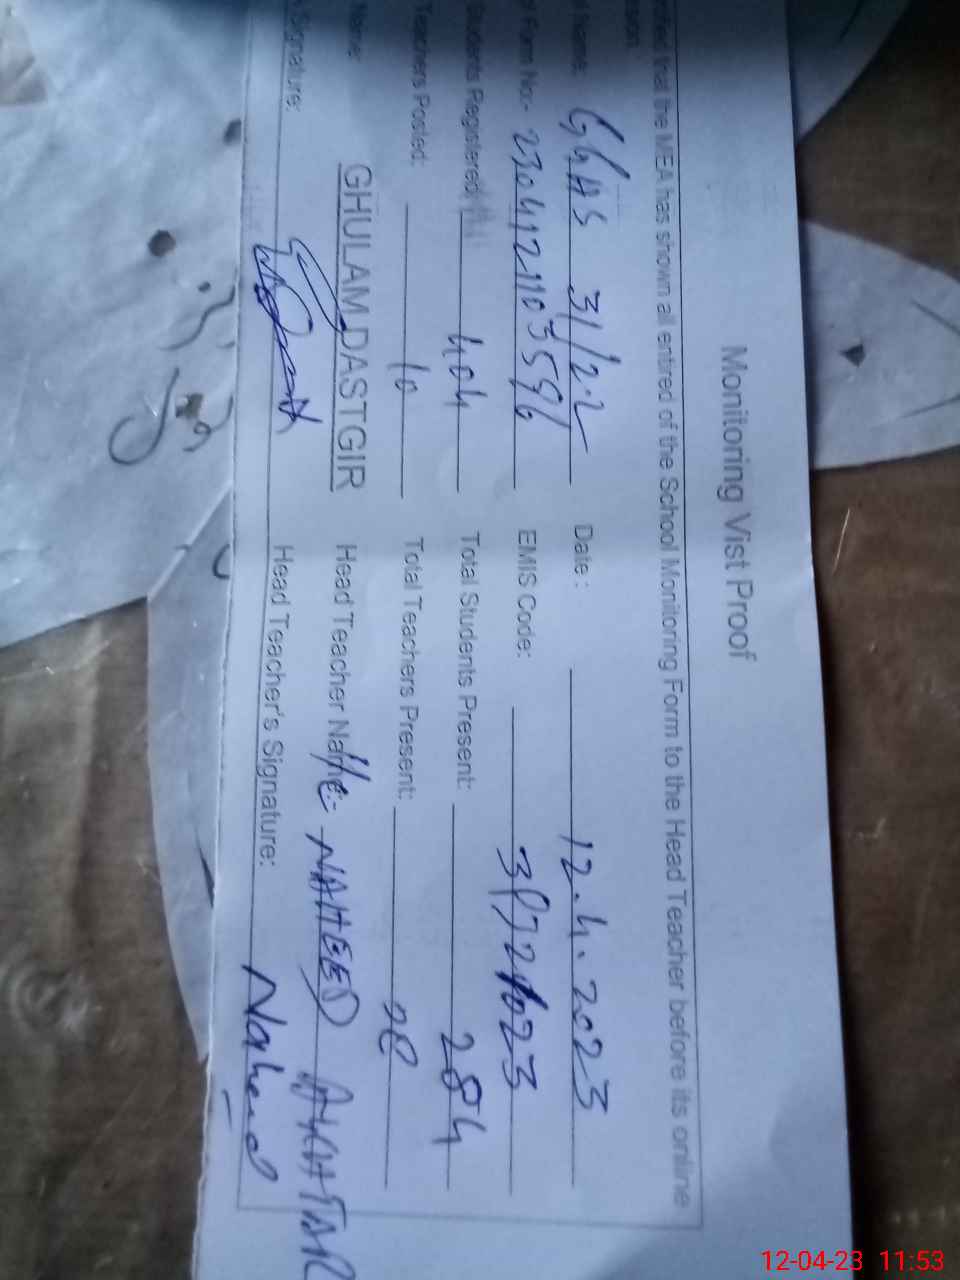 Monitoring Vist Proof
that the MEA has shown all entired of the School Monitoring Form to the Head Teacher before its online
Name: GGHS 31/2.L Date : 12.4.2023
Form No:- 2304121103596 EMIS Code: 37221023
Students Registered: 404 Total Students Present: 284
Teachers Posted: 10 Total Teachers Present: 08
Name: GHULAM DASTGIR Head Teacher Name:- NAHEED AKHTAR
Signature: Head Teacher's Signature: Naheed
12-04-23 11:53